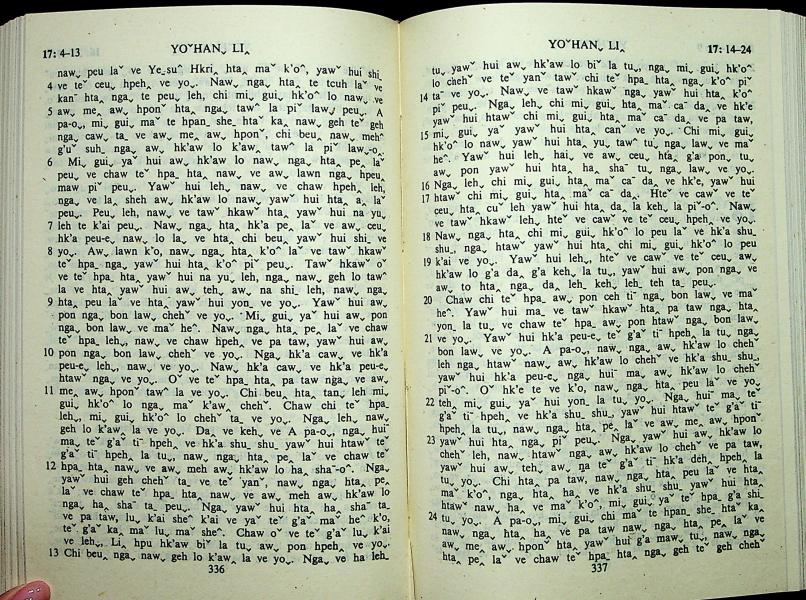 17: 4–13
YOˇHANˬ LIˬ
nawˬ peu laˇ ve Ye_su^ Hkri˰ hta˰ maˇ k'o^, yawˇ hui shi_
4 ve teˇ ceuˬ hpeh˰ ve yoˬ. Nawˬ nga˰ hta˰ te tcuh laˇ ve
kan¯ hta˰ nga˰ te peuˬ leh, chi miˬ guiˬ hk'o^ lo nawˬ ve
5 awˬ meˬ awˬ hpon¯ hta˰ ngaˬ tawˇ la piˇ lawˬ peuˬ. A
pa-oˬ, miˬ guiˬ ma te hpan_she_ htaˇ ka˰ nawˬ geh teˇ geh
ngaˬ cawˬ ta˰ ve awˬ meˬ awˬ hponˇ, chi beuˬ nawˬ meh^
g'uˇ suh_ ngaˬ awˬ hk'aw lo k'awˬ taw^ la piˇ lawˬ-o.
6 Miˬ guiˬ yaˇ hui awˬ hk'aw lo nawˬ ngaˬ hta˰ pe˰ laˇ
peuˬ ve chaw teˇ hpa_ hta˰ nawˬ ve awˬ lawn ngaˬ hpeuˬ
maw piˇ peuˬ. Yawˇ hui leh˰ nawˬ ve chaw hpeh˰ leh,
nga˰ ve la˰ sheh awˬ hk'aw lo nawˬ yawˇ hui hta˰ a˰ laˇ
peuˬ. Peuˬ leh, nawˬ ve tawˇ hkawˇ hta˰ yawˇ hui na yuˬ
7 leh te k'ai peuˬ. Nawˬ nga˰ hta˰ hk'a pe˰ la˰ ve awˬ ceuˬ
hk'a peu-eˬ nawˬ lo la˰ ve hta˰ chi beuˬ yawˇ hui shi˰ ve
8 yoˬ. Awˬ lawn k'o, nawˬ nga˰ hta˰ k'o^ laˇ ve tawˇ hkawˇ
teˇ hpa_ ngaˬ yawˇ hui hta˰ k'o^ piˇ peuˬ. Tawˇ hkawˇ oˇ
ve teˇ hpa_ hta˰ yawˇ hui na yuˬ leh, ngaˬ nawˬ geh lo tawˇ
la ve hta˰ yawˇ hui awˬ teh˰ awˬ na shi_ leh, nawˬ nga˰
9 hta˰ peu la ve hta˰ yawˇ hui yon_ ve yoˬ. Yawˇ hui awˬ
pon ngaˬ bon lawˬ chehˇ ve yoˬ. Miˬ guiˬ yaˇ hui awˬ pon
ngaˬ bon lawˬ ve maˇ he^. Nawˬ ngaˬ hta˰ pe˰ laˇ ve chaw
teˇ hpa_ leh˰ nawˬ ve chaw hpeh˰ ve pa taw˰ yawˇ hui awˬ
10 pon ngaˬ bon lawˬ chehˇ ve yoˬ. Nga˰ hk'a cawˬ ve hk'a
peu-eˬ leh˰ nawˬ ve yoˬ. Nawˬ hk'a cawˬ ve hk'a peu-eˬ
htawˇ nga˰ ve yoˬ. Oˇ ve teˇ hpa_ hta˰ pa taw˰ ngaˬ ve awˬ
11 meˬ awˬ hponˇ tawˇ la ve yoˬ. Chi beuˬ hta˰ tanˬ leh miˬ
guiˬ hk'o^ lo nga˰ maˇ k'awˬ chehˇ. Chaw chi teˇ hpa_
leh˰ miˬ guiˬ hk'o^ lo cheh˰ ta˰ ve yoˬ. Nga˰ leh˰ nawˬ
geh lo k'awˬ la ve yoˬ. Daˬ ve keh˰ ve A pa-oˬ, ngaˬ hui
maˬ teˇ g'aˇ tiˉ hpeh˰ ve hk'a shuˬ shuˬ yawˇ hui htawˇ teˇ
g'aˇ tiˉ hpeh˰ la tuˬ, nawˬ ngaˬ hta˰ pe˰ laˇ ve chaw teˇ
12 hpa_ hta˰ nawˬ ve awˬ meh awˬ hk'aw lo ha˰ shaˉ-o^. Nga˰
yawˇ hui geh chehˇ ta˰ ve teˇ yan¯ nawˬ ngaˬ hta˰ pe˰
laˇ ve chaw teˇ hpa_ hta˰ nawˬ ve awˬ meh awˬ hk'aw lo
nga˰ ha˰ shaˉ ta˰ peuˬ. Nga˰ yawˇ hui hta˰ ha˰ shaˉ ta˰
ve pa taw˰ luˬ k'ai she^ k'ai ve ya˰ teˇ g'aˇ maˇ he^ k'o,
teˇ g'aˇ ka˰ maˇ luˬ maˇ she^. Chaw oˇ ve teˇ g'aˇ luˬ k'ai
ve leh˰ Li˰ hpu hk'aw biˇ la tuˬ awˬ pon hpeh˰ ve yoˬ.
13 Chi beuˬ nga˰ nawˬ geh lo k'aw˰ la ve yoˬ. Nga˰ ve ha leh_
336
YOˇHANˬ LIˬ
17: 14–24
tuˬ yawˇ hui awˬ hk'aw lo biˇ la tuˬ, nga˰ miˬ guiˬ hk'o^
lo chehˇ ve teˇ yan¯ tawˇ chi teˇ hpa_ hta˰ nga˰ k'o^ piˇ
14 taˇ ve yoˬ. Nawˬ ve tawˇ hkawˇ ngaˬ yawˇ hui hta˰ k'o^
piˇ peuˬ. Nga˰ leh˰ chi miˬ guiˬ hta˰ maˇ caˉ da˰ ve hk'e
yawˇ hui htawˇ chi miˬ guiˬ hta˰ maˇ caˉ da˰ ve pa taw˰
15 miˬ guiˬ yaˇ yawˇ hui hta˰ canˇ ve yoˬ. Chi miˬ guiˬ
hk'o^ lo nawˬ yawˇ hui hta˰ yuˬ taw^ tuˬ nga˰ law˰ ve maˇ
he^. Yawˇ hui leh˰ haiˬ ve awˬ ceuˬ hta˰ g'a pon_ tuˬ,
awˬ pon yawˇ hui hta˰ ha˰ shaˉ tuˬ nga˰ law˰ ve yoˬ.
16 Nga˰ leh˰ chi miˬ guiˬ hta˰ maˇ caˉ da˰ ve hk'e˰ yawˇ hui
17 htawˇ chi miˬ guiˬ hta˰ maˇ caˉ da˰. Hteˇ ve cawˇ ve teˇ
ceuˬ hta˰ cuˇ leh yawˇ hui hta˰ da˰ la keh˰ la piˇ-o^. Nawˬ
ve tawˇ hkawˇ leh˰ hteˇ ve cawˇ ve teˇ ceuˬ hpeh˰ ve yoˬ.
18 Nawˬ nga˰ hta˰ chi miˬ guiˬ hk'o^ lo peu laˇ ve hk'a shuˬ
shuˬ nga˰ htawˇ yawˇ hui hta˰ chi miˬ guiˬ hk'o^ lo peu
19 k'ai ve yoˬ. Yawˇ hui leh˰ hteˇ ve cawˇ ve teˇ ceuˬ awˬ
hk'aw lo g'a da˰ g'a keh˰ la tuˬ, yawˇ hui awˬ pon nga˰ ve
awˬ to hta˰ nga˰ da˰ leh_ keh˰ leh_ teh ta˰ peuˬ.
20 Chaw chi teˇ hpa_ awˬ pon ceh tiˉ ngaˬ bon lawˬ ve maˇ
he^. Yawˇ hui ma˰ ve tawˇ hkawˇ hta˰ pa taw nga˰ hta˰
yon_ la tuˬ ve chaw teˇ hpa_ awˬ pon htawˇ nga˰ bon lawˬ
21 ve yoˬ. Yawˇ hui hk'a peu-eˬ teˇ g'aˇ tiˉ hpeh˰ la tuˬ nga˰
bon lawˬ ve yoˬ. A pa-oˬ, nawˬ nga˰ awˬ hk'aw lo chehˇ
leh nga˰ htawˇ nawˬ awˬ hk'aw lo chehˇ ve hk'a shuˬ shuˬ
yawˇ hui hk'a peu-eˬ nga˰ hui¯ ma˰ awˬ hk'aw lo chehˇ
piˇ-o^. Oˇ hk'e te ve k'o, nawˬ nga˰ hta˰ peu laˇ ve yoˬ
22 teh˰ miˬ guiˬ yaˇ hui yon_ la tuˬ yoˬ. Nga˰ hui¯ ma˰ teˇ
g'aˇ tiˉ hpeh˰ ve hk'a shuˬ shuˬ yawˇ hui htawˇ teˇ g'aˇ tiˉ
hpeh˰ la tuˬ, nawˬ nga˰ hta˰ pe˰ laˇ ve awˬ meˬ awˬ hponˇ
23 yawˇ hui hta˰ nga˰ piˇ peuˬ. Nga˰ yawˇ hui awˬ hk'aw lo
chehˇ leh˰ nawˬ htawˇ nga˰ awˬ hk'aw lo chehˇ ve pa taw˰
yawˇ hui awˬ teh˰ awˬ na teˇ g'aˇ tiˉ hk'a deh˰ hpeh˰ la
tuˬ yoˬ. Chi hta˰ pa taw˰ nawˬ nga˰ hta˰ peu la ve hta˰
maˇ k'o^, nga˰ hta˰ ha˰ ve hk'a shuˬ shuˬ yawˇ hui hta˰
htawˇ nawˬ ha˰ ve maˇ k'o^, miˬ guiˬ yaˇ teˇ hpa_ g'a shi_
24 tuˬ yoˬ. A pa-oˬ, miˬ guiˬ chi maˇ te hpan_she_ htaˇ ka˰
nawˬ nga˰ hta˰ ha˰ ve pa taw nawˬ nga˰ hta˰ pe˰ laˇ ve
awˬ meˬ awˬ hponˇ hta˰ yawˇ hui g'a mawˬ tuˬ, nawˬ nga˰
hta˰ pe˰ laˇ ve chaw teˇ hpa_ hta˰ nga˰ geh teˇ geh chehˇ
337